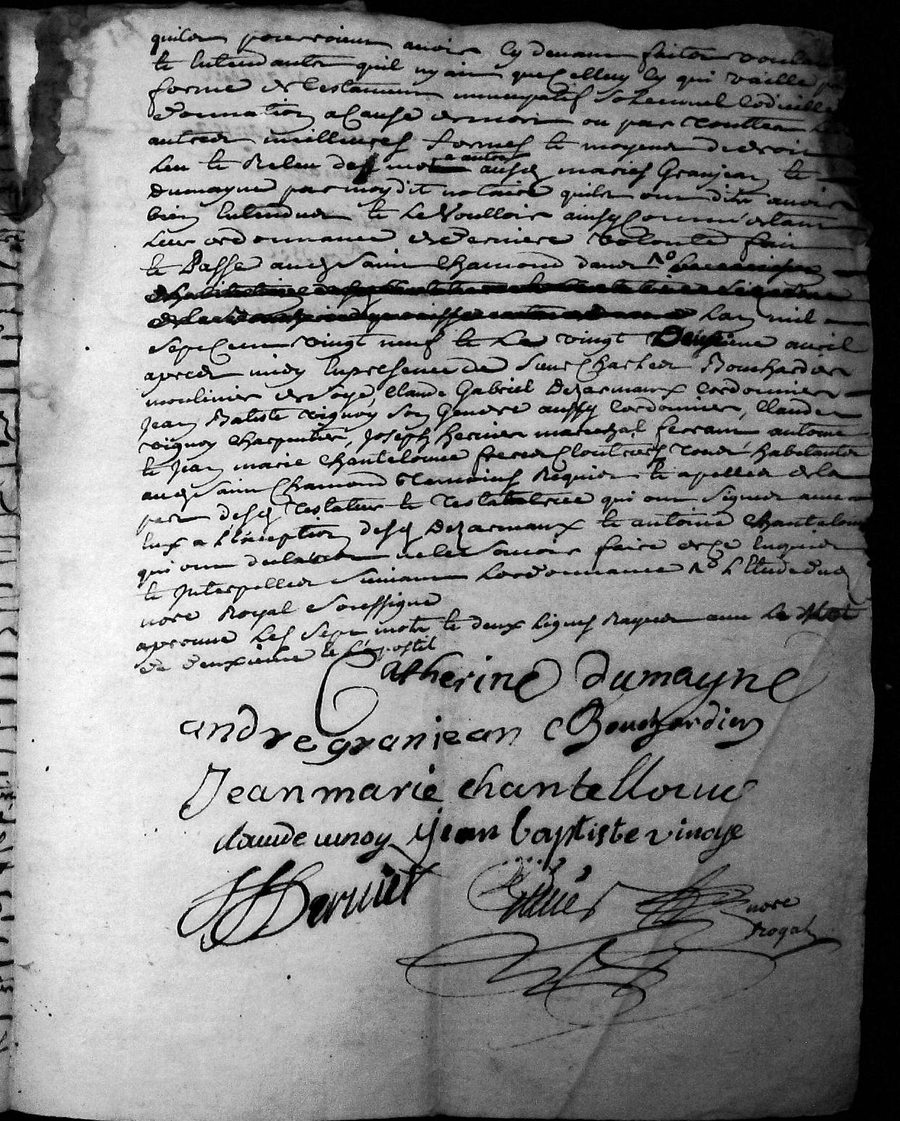 quils pourroient avoir cy devant faites voulant
et entendants quil ny ait que celluy cy qui vaille par
forme de testament nuncupatif solemnel codicille
donnation a cause de mort ou par touttes les
autres meilleures formes et moyens de droit
leu et releu de mot a autre ausd mariés Granjean et
Dumayne par moydit notaire quils ont dit avoir
bien entendues et le voulloir ainsy comme estant
leur ordonnance et derniere volonté fait
et passé aud Saint Chamond dans No
lan mil
sept cent vingt neuf et le vingt deuxieme avril
apres midy en presence de Sieur Charles Bouchardier
moulinier de soye, Claude Gabriel Dezarmaux cordonnier
Jean Batiste vignoy son gendre aussy cordonnier, Claude
vignoy charpentier, Joseph Hernier marechal ferrant antoine
et Jean marie Chantelouue freres cloutiers tous habitants
aud Saint Chamond temoins requis et apellés de la
part desd Testateur et Testatrice qui ont signés avec
eux a l'exception desd Dezarmaux et antoine Chantelouue
qui ont declarés ne le sçavoir faire de ce enquis
et interpellés suivant lordonnance No l'etude dud
nore Royal soussigné
aprouvé les sept mots et deux lignes rayées avec le mot
de deuxieme et l'apostil
Catherine dumayne
andre granjean C Bouchardier
Jean marie chantellouue
claude vinoy jean baptiste vinoye
J Hernier
nore
Royal